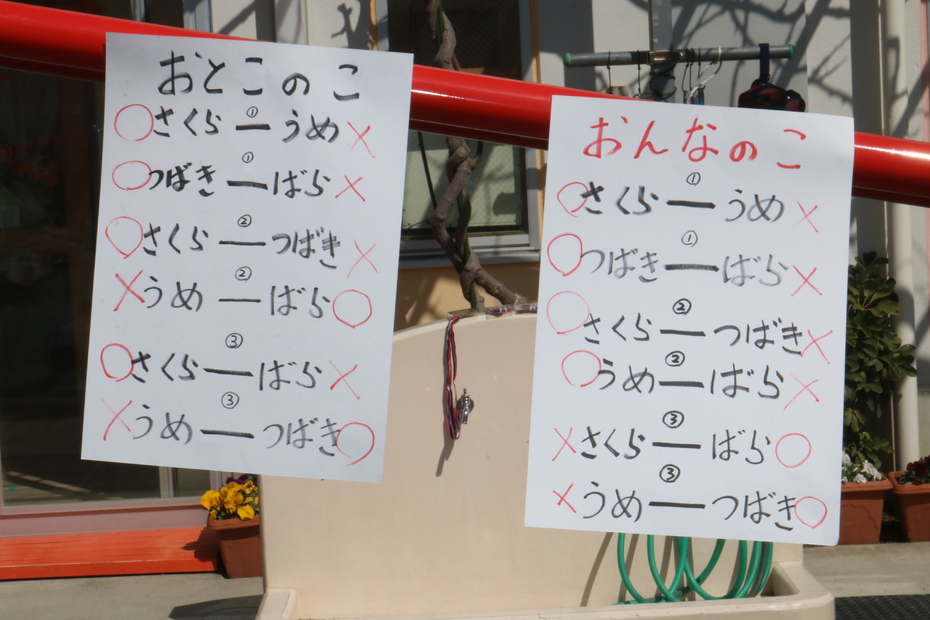 おとこのこ
①
○さくら ー うめ×
①
○つばき ー ばら×
②
○さくら ー つばき×
②
×うめ ー ばら○
③
○さくら ー ばら×
③
×うめ ー つばき○
おんなのこ
①
○さくら ー うめ×
①
○つばき ー ばら×
②
○さくら ー つばき×
②
○うめ ー ばら×
③
×さくら ー ばら○
③
×うめ ー つばき○